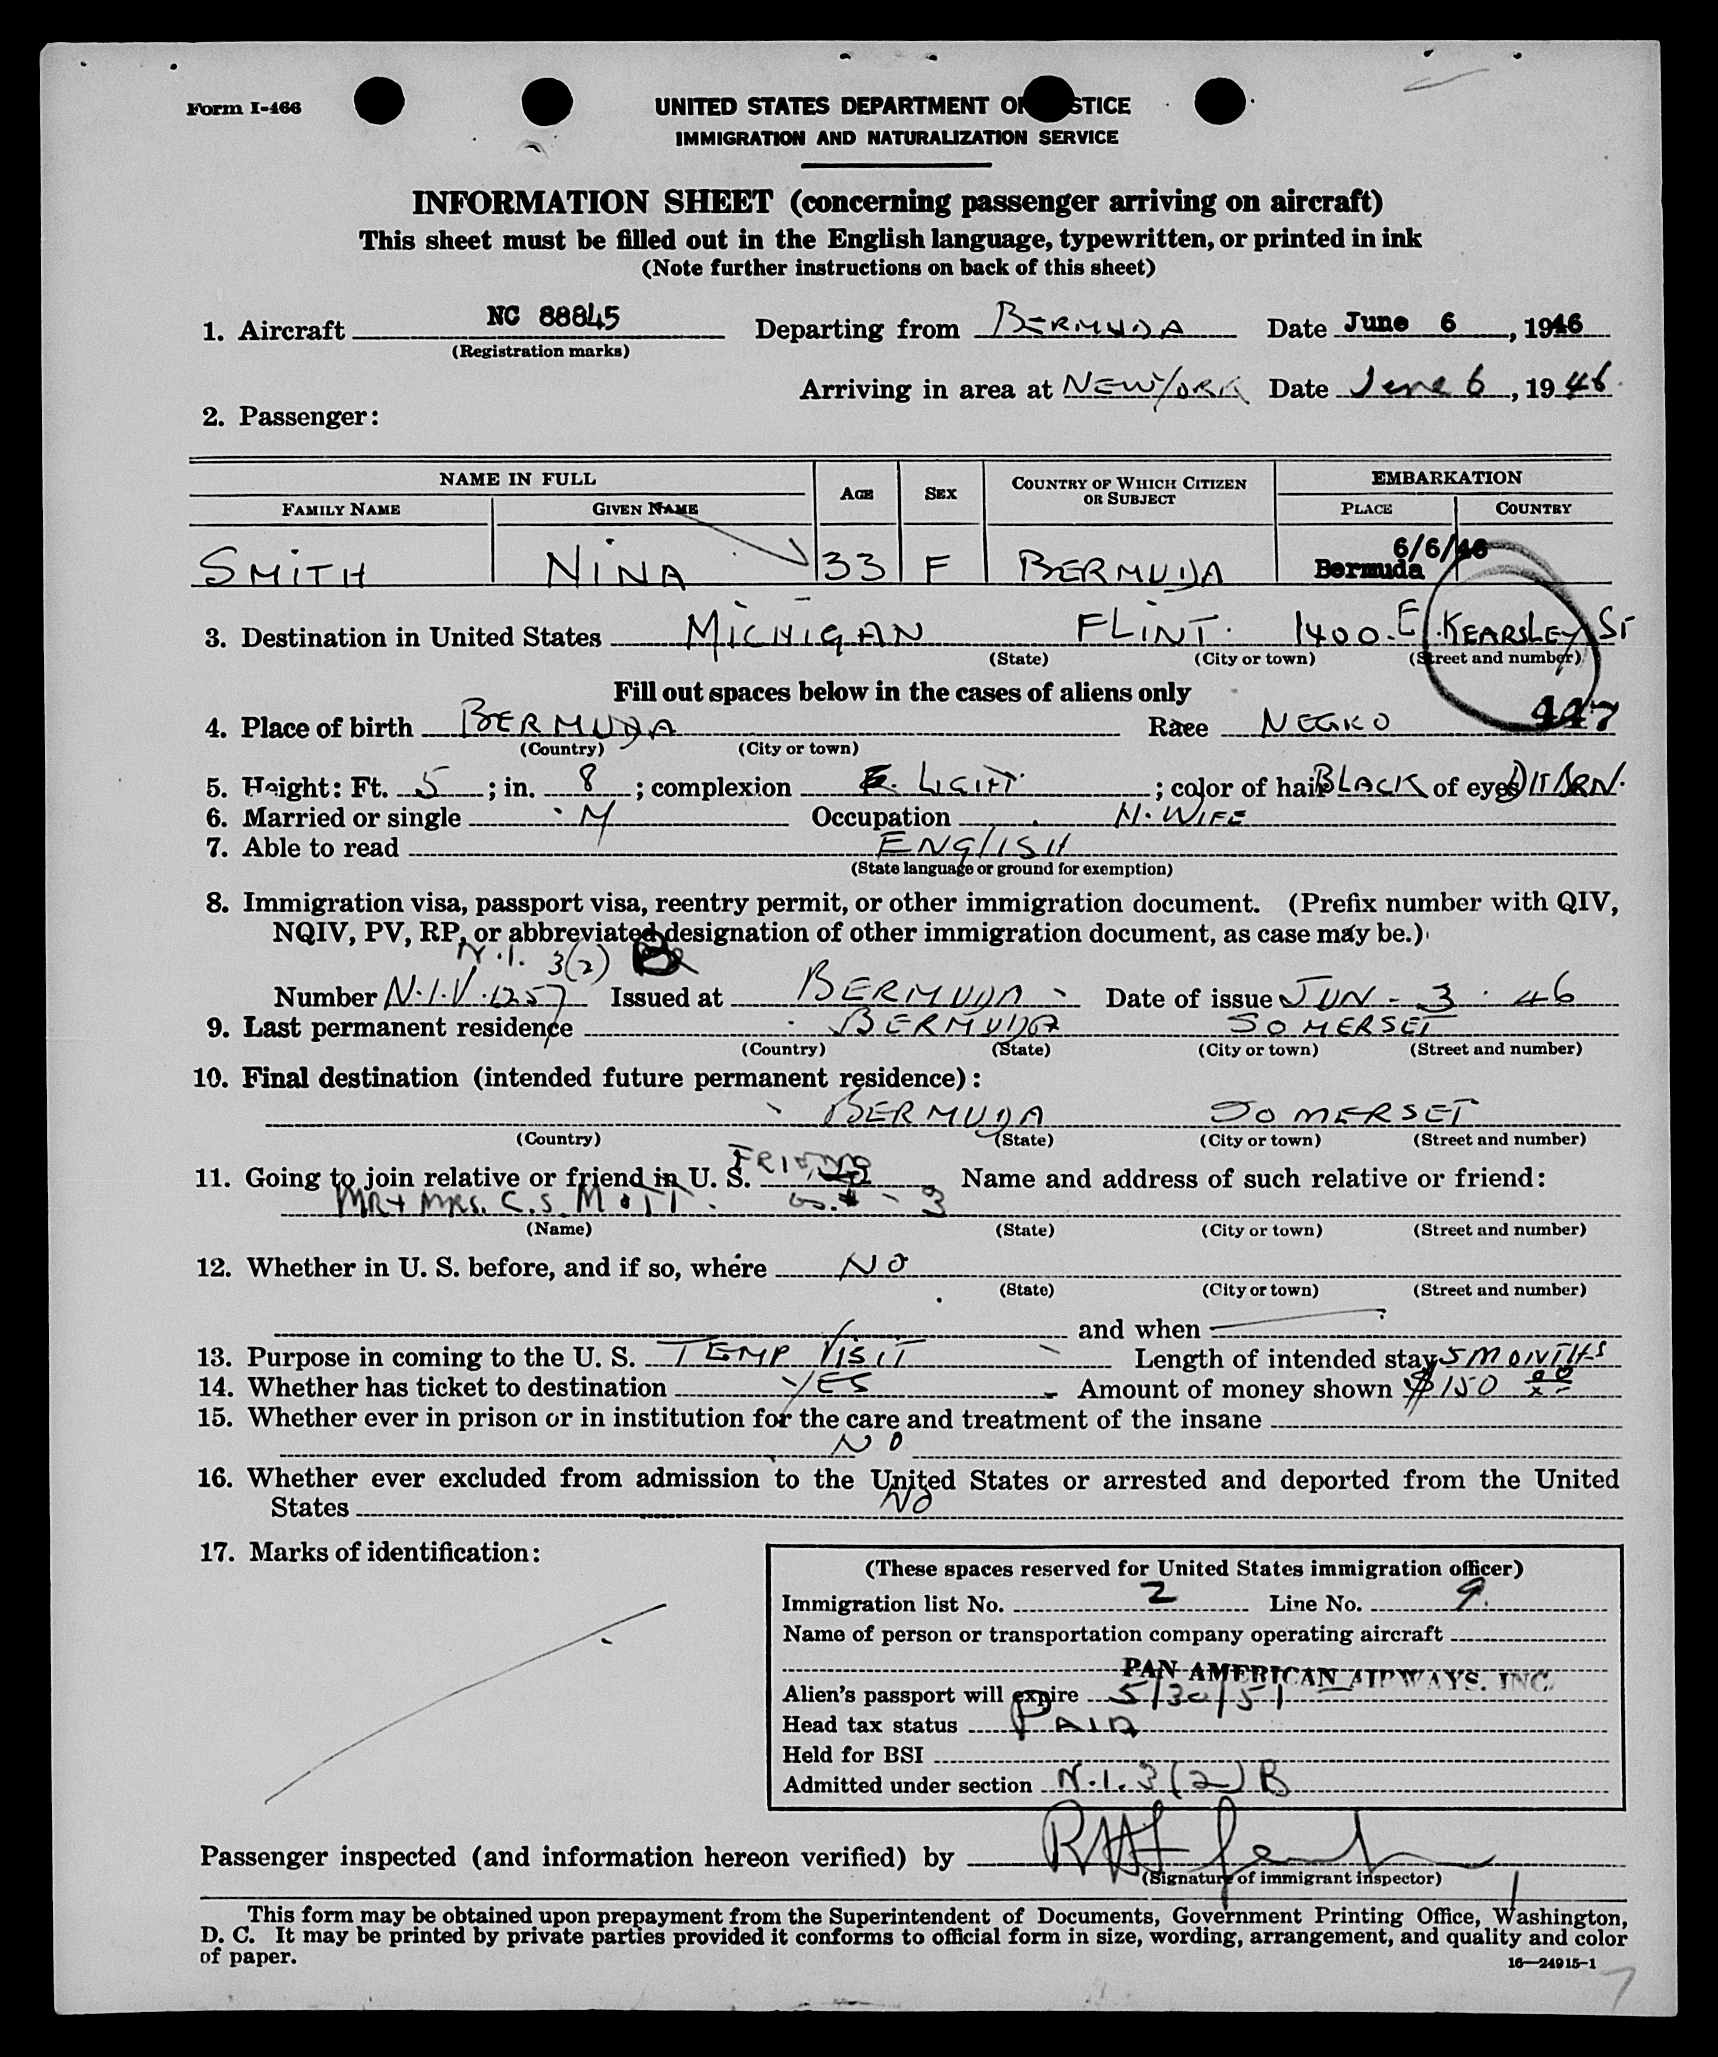 Form I-466
UNITED STATES DEPARTMENT OF JUSTICE
IMMIGRATION AND NATURALIZATION SERVICE
INFORMATION SHEET (concerning passenger arriving on aircraft)
This sheet must be filled out in the English language, typewritten, or printed in ink
(Note further instructions on back of this sheet)
1. Aircraft NC 88845 Departing from BERMUDA Date June 6, 1946
(Registration marks)
Arriving in area at NEW YORK Date June 6, 1946
2. Passenger:
NAME IN FULL AGE SEX COUNTRY OF WHICH CITIZEN OR SUBJECT EMBARKATION
FAMILY NAME GIVEN NAME PLACE COUNTRY
6/6/46
SMITH NINA 33 F BERMUDA Bermuda
3. Destination in United States MICHIGAN FLINT. 1400 E. KEARSLEY ST
(State) (City or town) (Street and number)
Fill out spaces below in the cases of aliens only
4. Place of birth BERMUDA Race NEGRO 447
(Country) (City or town)
5. Height: Ft. 5; in. 8; complexion LIGHT; color of hair BLACK of eyes BRN.
6. Married or single M Occupation H. WIFE
7. Able to read ENGLISH
(State language or ground for exemption)
8. Immigration visa, passport visa, reentry permit, or other immigration document. (Prefix number with QIV,
NQIV, PV, RP, or abbreviated designation of other immigration document, as case may be.)
N.I. 3(2) B
Number N.I.V. 1257 Issued at BERMUDA Date of issue JUN - 3 . 46
9. Last permanent residence BERMUDA SOMERSET
(Country) (State) (City or town) (Street and number)
10. Final destination (intended future permanent residence):
BERMUDA SOMERSET
(Country) (State) (City or town) (Street and number)
11. Going to join relative or friend in U. S. FRIEND Name and address of such relative or friend:
MR + MRS. C. S. MOTT. - 3
(Name) (State) (City or town) (Street and number)
12. Whether in U. S. before, and if so, where NO
(State) (City or town) (Street and number)
and when
13. Purpose in coming to the U. S. TEMP VISIT Length of intended stay 5 MONTHS
14. Whether has ticket to destination YES Amount of money shown $150 00/xx
15. Whether ever in prison or in institution for the care and treatment of the insane
NO
16. Whether ever excluded from admission to the United States or arrested and deported from the United
States NO
17. Marks of identification:
(These spaces reserved for United States immigration officer)
Immigration list No. 2 Line No. 9.
Name of person or transportation company operating aircraft
PAN AMERICAN AIRWAYS, INC.
Alien's passport will expire 5/30/51
Head tax status PAID
Held for BSI
Admitted under section N.I. 3(2)B
Passenger inspected (and information hereon verified) by
(Signature of immigrant inspector)
This form may be obtained upon prepayment from the Superintendent of Documents, Government Printing Office, Washington,
D. C. It may be printed by private parties provided it conforms to official form in size, wording, arrangement, and quality and color
of paper.
16—24915-1
7